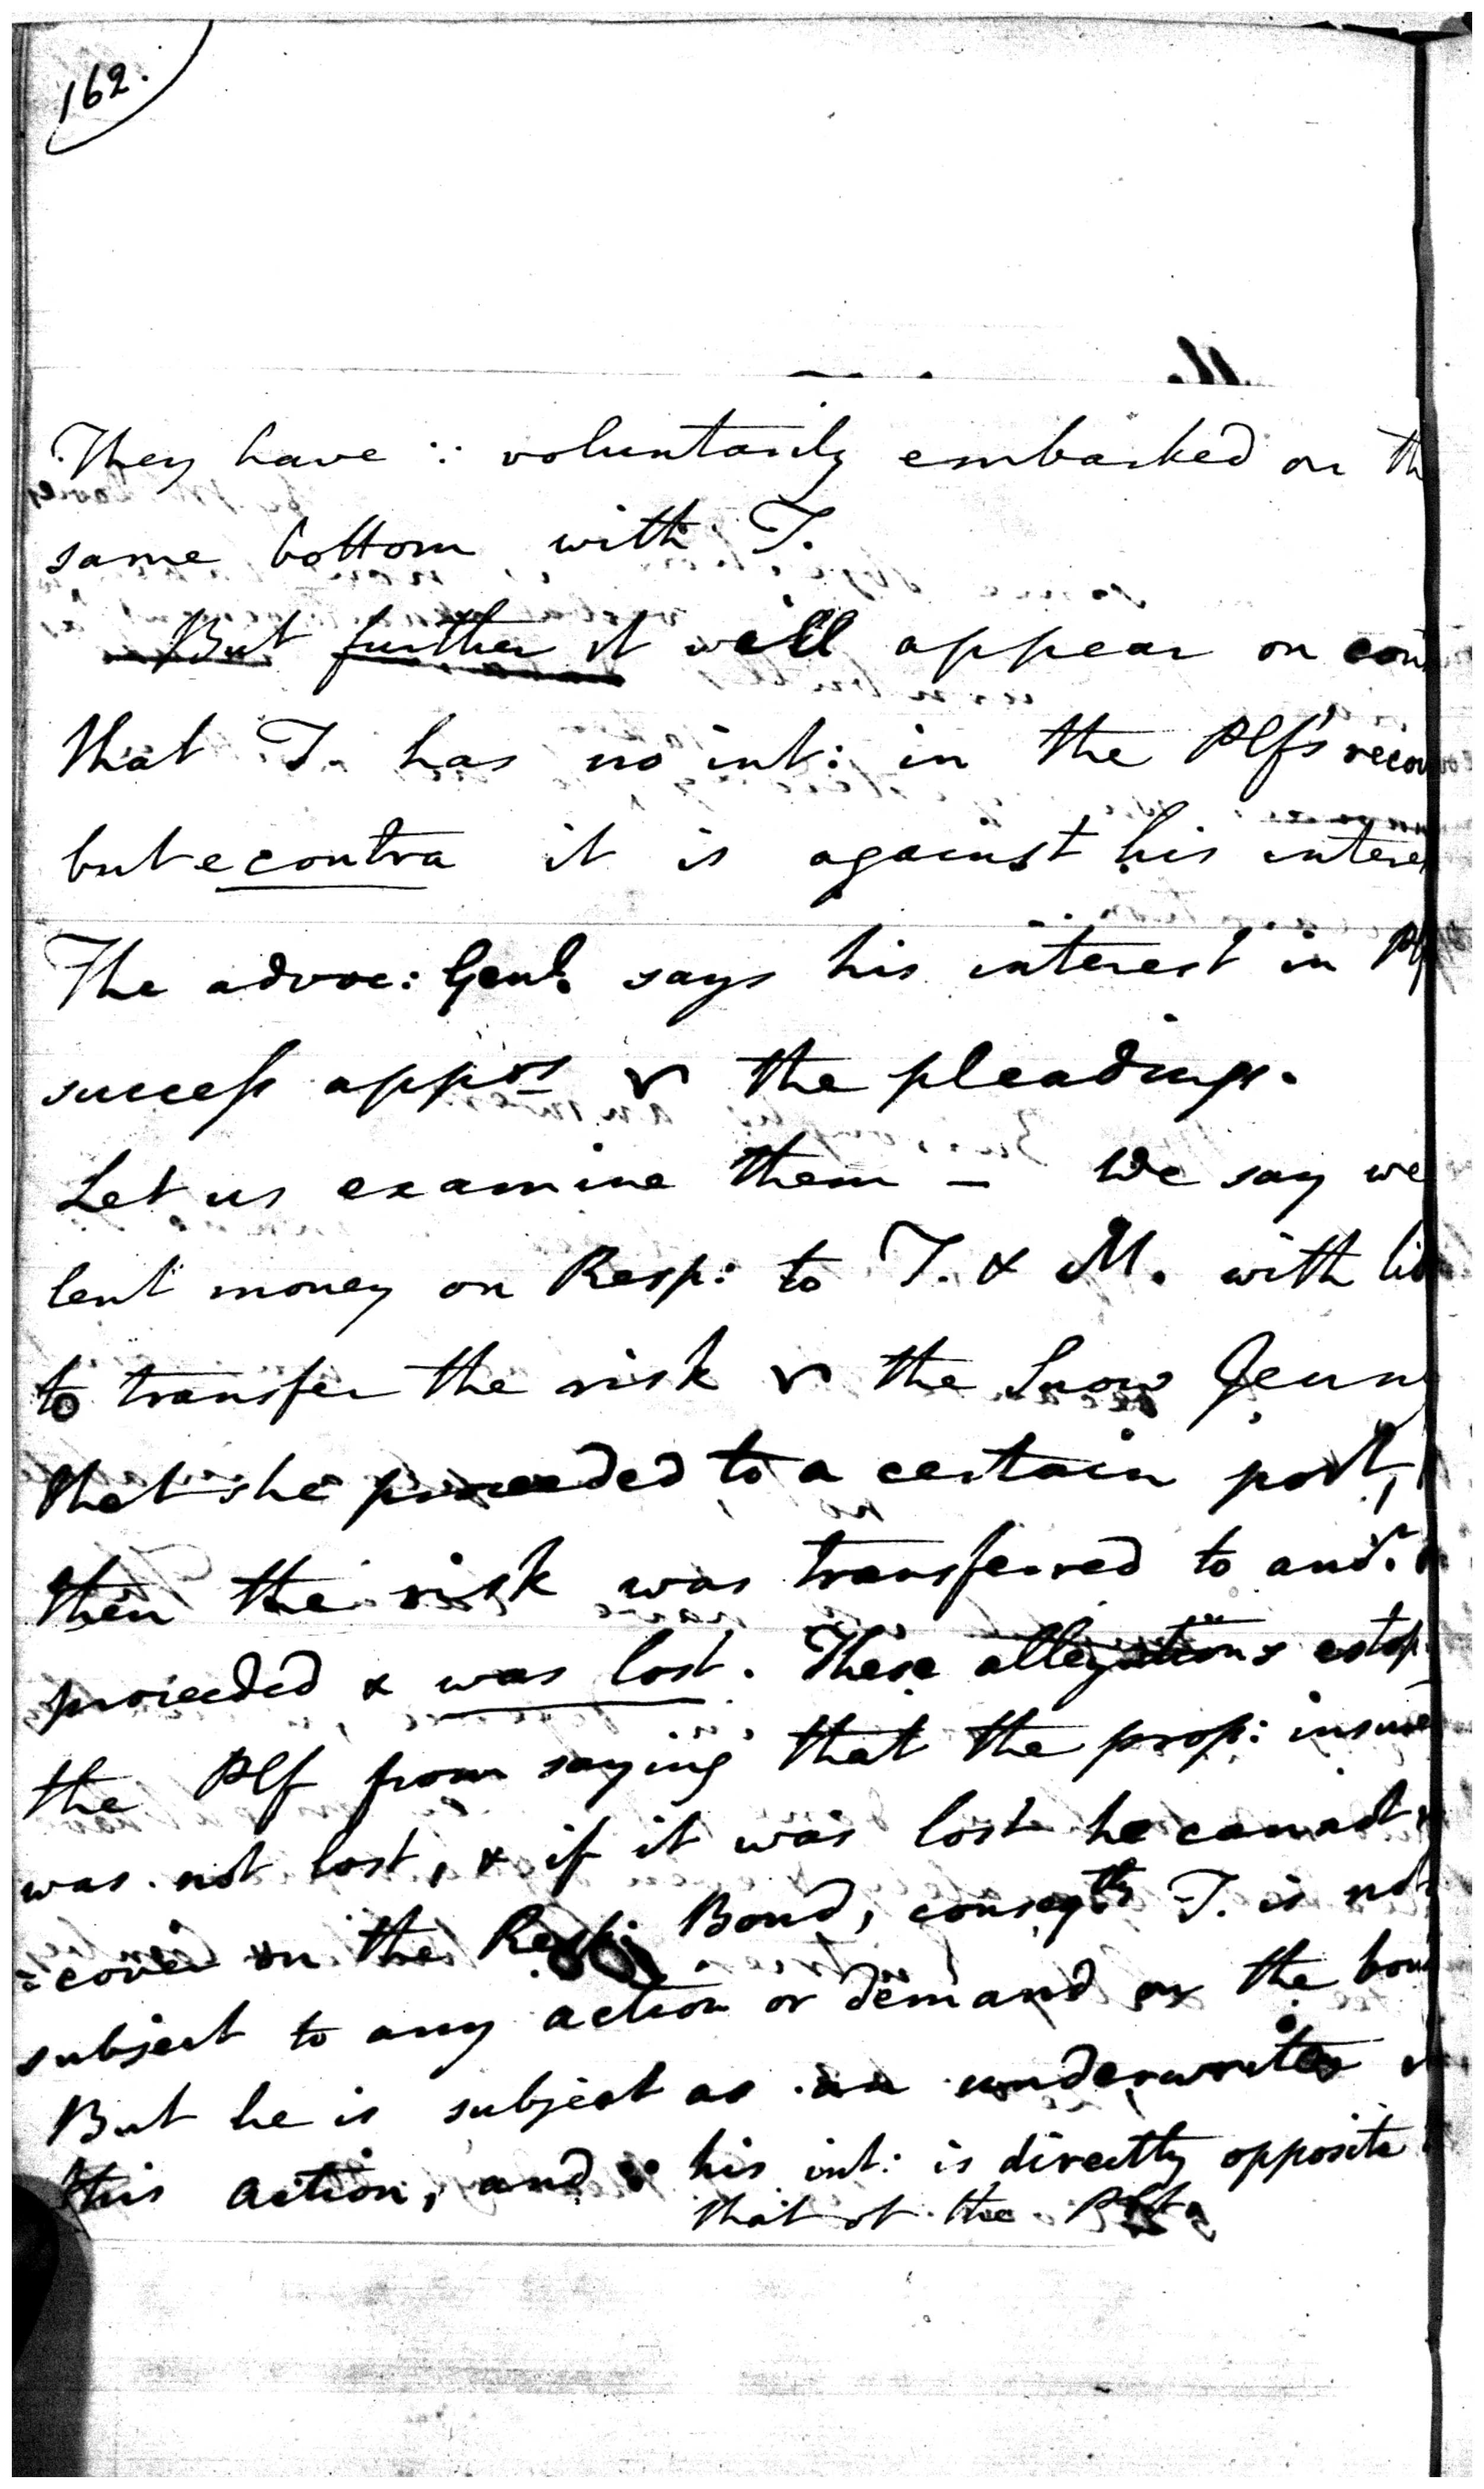 162.
They have ∵ voluntarily embarked on th
same bottom with T.
But further it will appear on con
that T. has no int: in the Plf's recov
but e contra it is against his intere
The advoc: Genl. says his interest in Pl
success appos the pleadings.
Let us examine them — We say we
lent money on Resp: to T. & M. with lib
to transfer the risk the Snow Jenny
that she proceeded to a certain port,
then the risk was transferred to anor.
proceeded & was lost. These allegations estop
the Plf from saying that the prop: insure
was not lost, & if it was lost he cannot
=cover on the Resp: Bond, conseqtly T. is not
subject to any action or demand on the bon
But he is subject as an underwriter
this action, and ∵ his int: is directly opposite
that of the Plfs